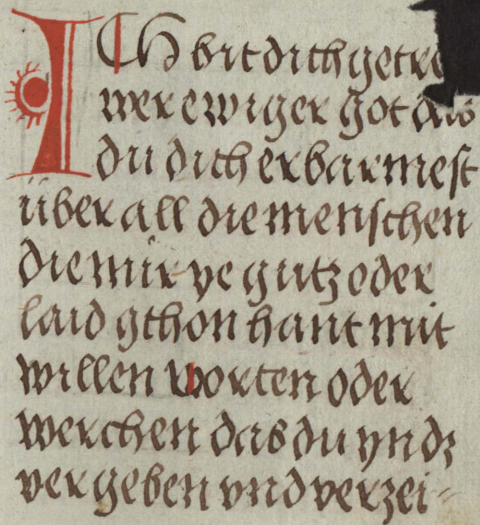 ICh bit dich getre
wer ewiger got das
du dich erbarmest
über all die menschen
die mir ye gutz oder
laid gthon hant mit
willen worten oder
werchen das du yn dz
vergeben vnd verzei-